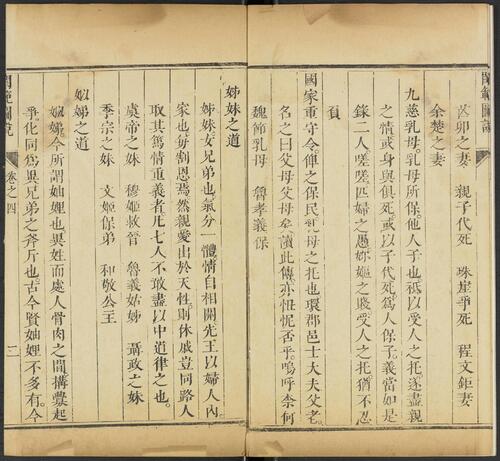 閨範圖說
芮卯之妻　親子代死　珠崖爭死　程文鉅妻
余楚之妻
九慈乳母。乳母所保他人子也。秪以受人之托。遂盡親
之情。或身與俱死。或以子代死。爲人保子。義當如是
錄二人。嗟嗟。匹婦之愚。妳嫗之賤。受人之托。猶不忍
負
國家重守令。俾之保民。乳母之托也。環郡邑士大夫父老。
名之曰父母。父母矣。讀此傳亦忸怩否乎。嗚呼。柰何
魏節乳母　魯孝義保
姊妹之道
姊妹。女兄弟也。氣分一體。情自相關。先王以婦人內
家也。每割恩焉。然親愛出於天性。則休戚豈同路人
取其篤情重義者。凡七人。不敢盡以中道律之也。
虞帝之妹　穆姬救晉　魯義姑姊　聶政之妹
季宗之妹　文姬保弟　和敬公主
姒娣之道
姒娣。今所謂妯娌也。異姓而處人骨肉之間。搆釁起
爭。化同爲異。兄弟之斧斤也。古今賢妯娌不多有。今
閨範圖說
卷之四
二